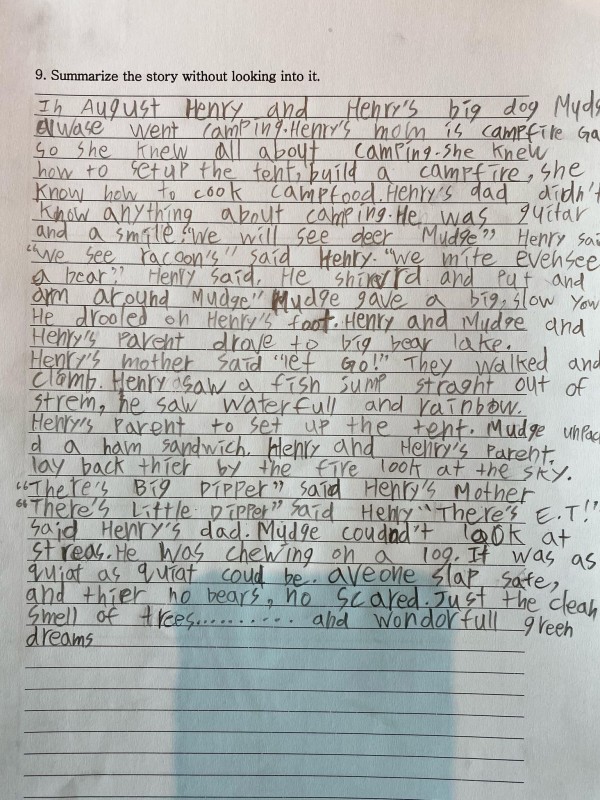 9. Summarize the story without looking into it.
In August Henry and Henry's big dog Myds
alwase went camping. Henry's mom is campfire Ga
so she knew all about camping. she knew
how to setup the tent, build a campfire, she
know how to cook campfood. Henry's dad didn't
know anything about camping. He was guitar
and a smile. "We will see deer Mudge" Henry sai
"We see racoon's" said Henry. "We mite evensee
a bear?" Henry said. He shiverd and put and
arm around Mudge" Mudge gave a big, slow yow
He drooled on Henry's foot. Henry and Mudge and
Henry's Parent drove to big bear lake.
Henry's mother said "let Go!" They walked and
clamb. Henry saw a fish jump straght out of
strem, he saw waterfull and rainbow.
Henry's Parent to set up the tent. Mudge unpac
d a ham sandwich. Henry and Henry's Parent.
lay back thier by the fire look at the sky.
"There's Big Dipper" said Henry's Mother
"There's Little Dipper" said Henry "There's E.T!"
said Henry's dad. Mydge coudnd't look at
streas. He was chewing on a log. It was as
quiat as quiat coud be. aveone slap safe,
and thier no bears, no scared. Just the clean
smell of trees.......... and wondorfull green
dreams